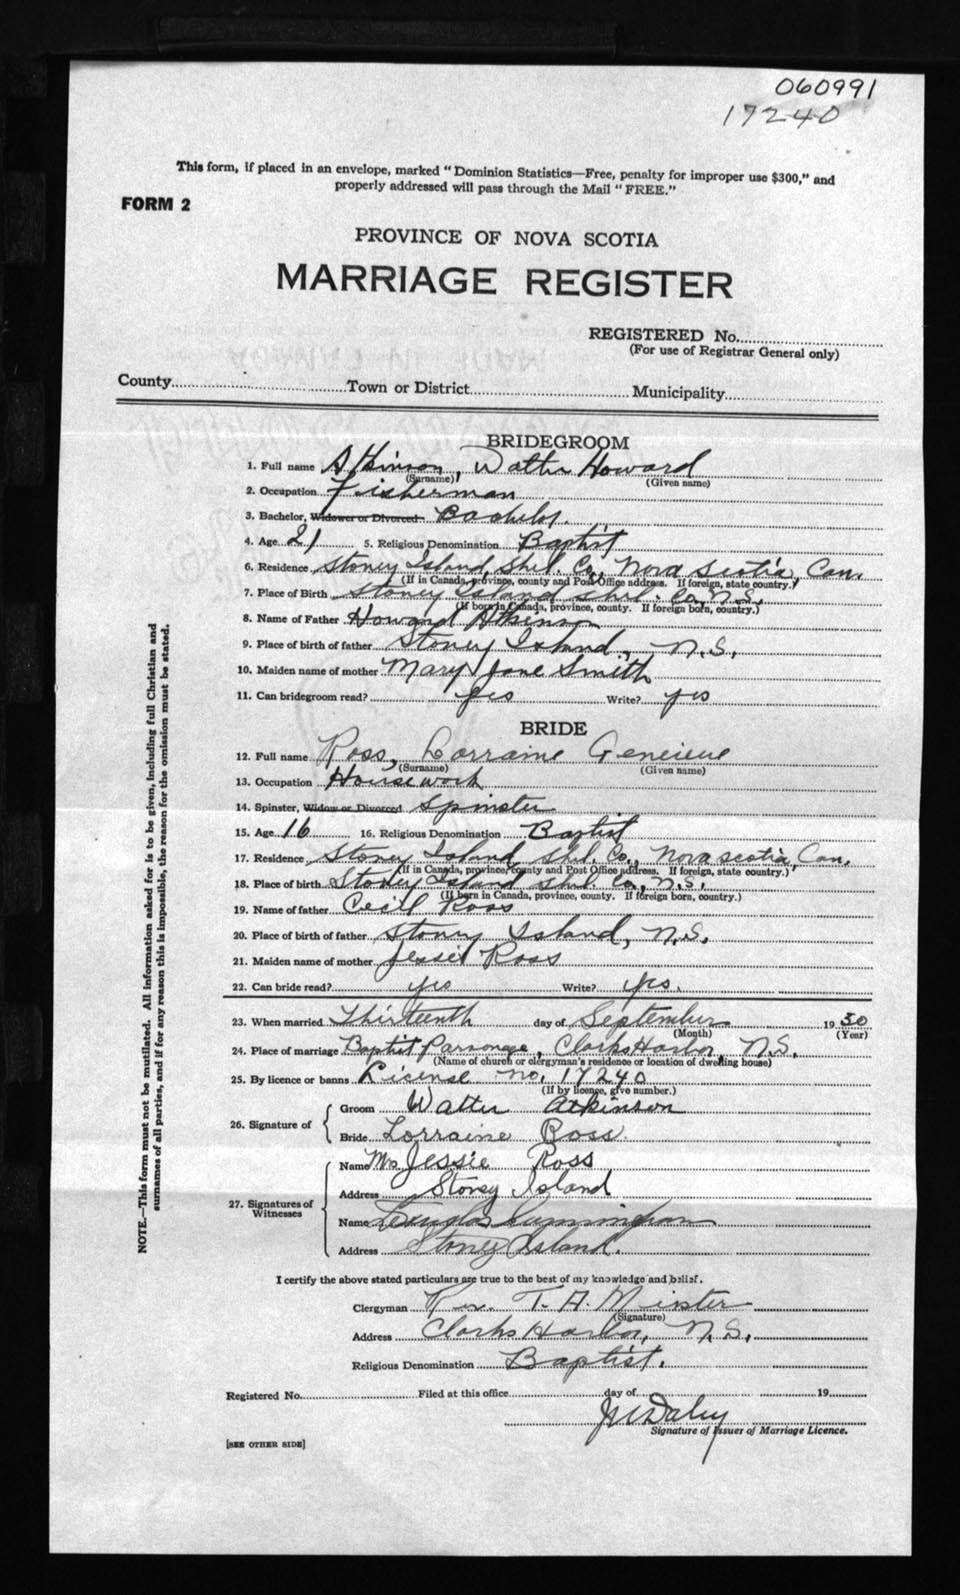 060991
17240
This form, if placed in an envelope, marked "Dominion Statistics—Free, penalty for improper use $300," and
properly addressed will pass through the Mail "FREE."
FORM 2
PROVINCE OF NOVA SCOTIA
MARRIAGE REGISTER
REGISTERED No.
(For use of Registrar General only)
County Town or District Municipality
BRIDEGROOM
1. Full name Atkinson, Walter Howard
(Surname) (Given name)
2. Occupation Fisherman
3. Bachelor, Widower or Divorced Bachelor.
4. Age 21 5. Religious Denomination Baptist
6. Residence Stoney Island, Shel. Co., Nova Scotia, Can.
(If in Canada, province, county and Post Office address. If foreign, state country.)
7. Place of Birth Stoney Island Shel. Co. N.S.
(If born in Canada, province, county. If foreign born, country.)
8. Name of Father Howard Atkinson
9. Place of birth of father Stoney Island, N.S.
10. Maiden name of mother Mary Jane Smith
11. Can bridegroom read? yes Write? yes
BRIDE
12. Full name Ross, Lorraine Genevieve
(Surname) (Given name)
13. Occupation Housework
14. Spinster, Widow or Divorced Spinster
15. Age 16 16. Religious Denomination Baptist
17. Residence Stoney Island, Shel. Co., Nova Scotia, Can.
(If in Canada, province, county and Post Office address. If foreign, state country.)
18. Place of birth Stoney Island Shel. Co., N.S.
(If born in Canada, province, county. If foreign born, country.)
19. Name of father Cecil Ross
20. Place of birth of father Stoney Island, N.S.
21. Maiden name of mother Jessie Ross
22. Can bride read? yes Write? yes.
23. When married Thirteenth day of September 1930
(Month) (Year)
24. Place of marriage Baptist Parsonage, Clarks Harbor, N.S.
(Name of church or clergyman's residence or location of dwelling house)
25. By licence or banns License no. 17240
(If by licence, give number.)
26. Signature of
Groom Walter Atkinson
Bride Lorraine Ross.
27. Signatures of Witnesses
Name Mrs Jessie Ross
Address Stoney Island
Name Douglas Cunningham
Address Stoney Island.
I certify the above stated particulars are true to the best of my knowledge and belief.
Clergyman Rev. T. A. Meister
(Signature)
Address Clarks Harbor, N.S.
Religious Denomination Baptist.
Registered No. Filed at this office day of 19
Daley
Signature of Issuer of Marriage Licence.
[SEE OTHER SIDE]
NOTE.—This form must not be mutilated. All information asked for is to be given, including full Christian and
surnames of all parties, and if for any reason this is impossible, the reason for the omission must be stated.